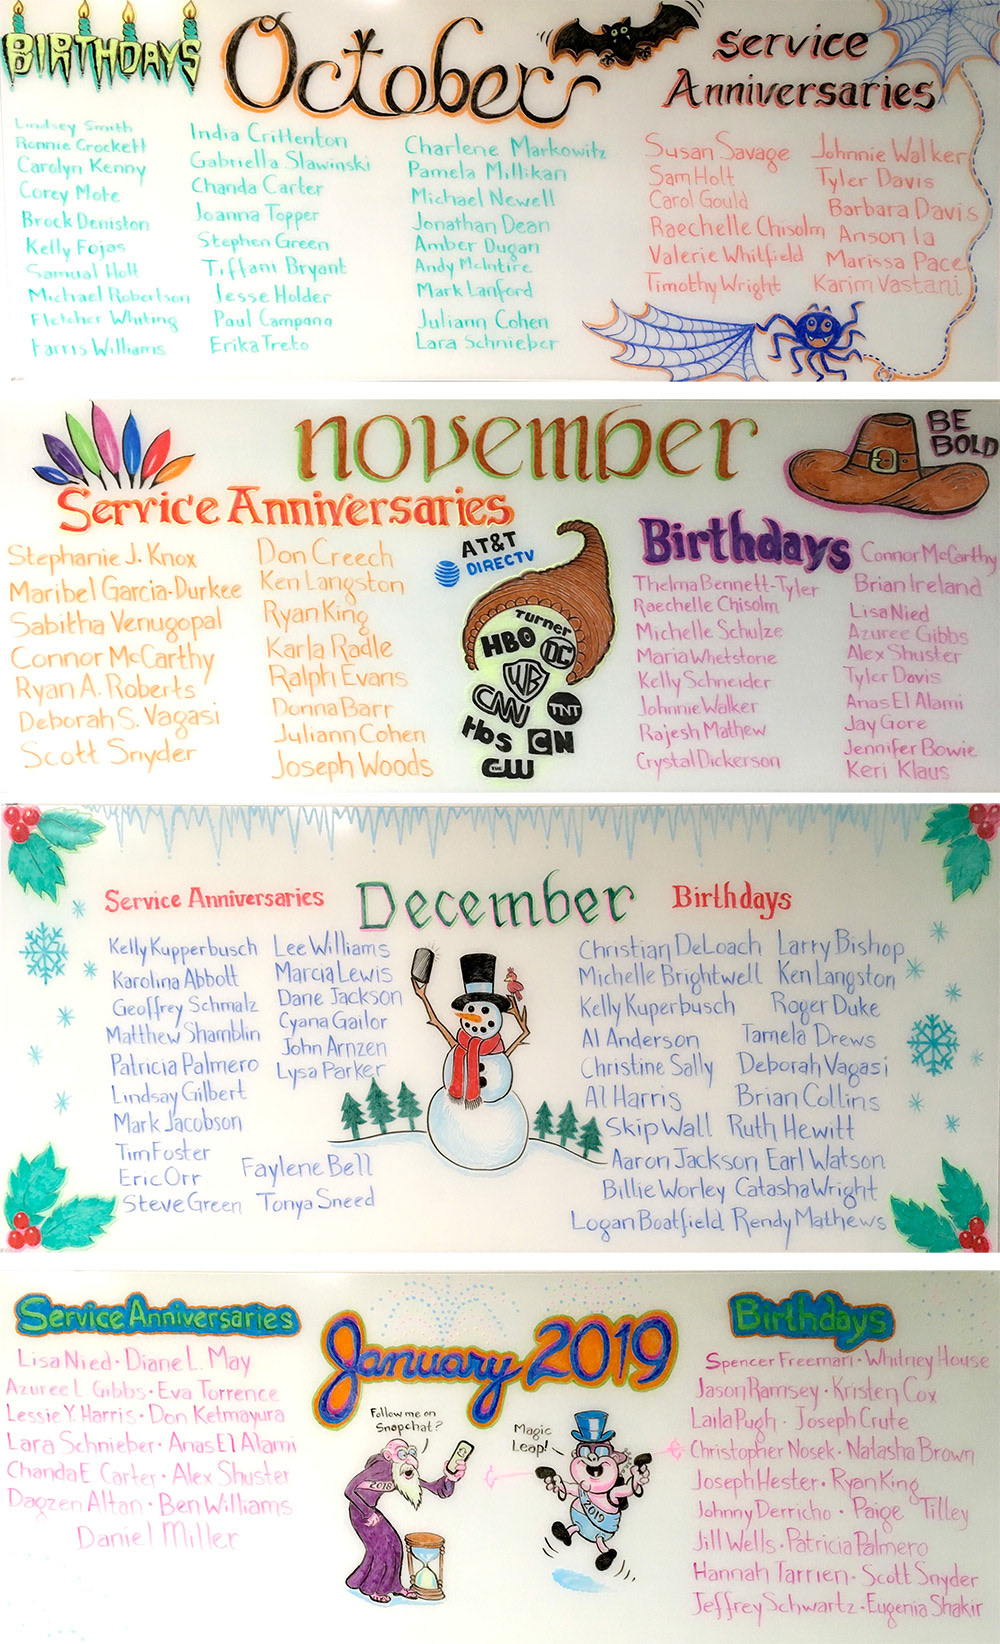 BIRTHDAYS
October
Service
Anniversaries
Lindsey Smith
Ronnie Crockett
Carolyn Kenny
Corey Mote
Brock Deniston
Kelly Fojas
Samual Holt
Michael Robertson
Fletcher Whiting
Farris Williams
India Crittenton
Gabriella Slawinski
Chanda Carter
Joanna Topper
Stephen Green
Tiffani Bryant
Jesse Holder
Paul Campana
Erika Treto
Charlene Markowitz
Pamela Millikan
Michael Newell
Jonathan Dean
Amber Dugan
Andy McIntire
Mark Lanford
Juliann Cohen
Lara Schnieber
Susan Savage
Sam Holt
Carol Gould
Raechelle Chisolm
Valerie Whitfield
Timothy Wright
Johnnie Walker
Tyler Davis
Barbara Davis
Anson Ia
Marissa Pace
Karim Vastani
november
BE
BOLD
Service Anniversaries
Stephanie J. Knox
Maribel Garcia-Durkee
Sabitha Venugopal
Connor McCarthy
Ryan A. Roberts
Deborah S. Vagasi
Scott Snyder
Don Creech
Ken Langston
Ryan King
Karla Radle
Ralph Evans
Donna Barr
Juliann Cohen
Joseph Woods
AT&T
DIRECTV
Turner
HBO
DC
WB
CNN
TNT
tbs
CN
THE CW
Birthdays
Thelma Bennett-Tyler
Raechelle Chisolm
Michelle Schulze
Maria Whetstone
Kelly Schneider
Johnnie Walker
Rajesh Mathew
Crystal Dickerson
Connor McCarthy
Brian Ireland
Lisa Nied
Azuree Gibbs
Alex Shuster
Tyler Davis
Anas El Alami
Jay Gore
Jennifer Bowie
Keri Klaus
Service Anniversaries
December
Birthdays
Kelly Kupperbusch
Karolina Abbott
Geoffrey Schmalz
Matthew Shamblin
Patricia Palmero
Lindsay Gilbert
Mark Jacobson
Tim Foster
Eric Orr
Steve Green
Lee Williams
Marcia Lewis
Dane Jackson
Cyana Gailor
John Arnzen
Lysa Parker
Faylene Bell
Tonya Sneed
Christian DeLoach
Michelle Brightwell
Kelly Kuperbusch
Al Anderson
Christine Sally
Al Harris
Skip Wall
Aaron Jackson
Billie Worley
Logan Boatfield
Larry Bishop
Ken Langston
Roger Duke
Tamela Drews
Deborah Vagasi
Brian Collins
Ruth Hewitt
Earl Watson
Catasha Wright
Rendy Mathews
Service Anniversaries
Lisa Nied · Diane L. May
Azuree L Gibbs · Eva Torrence
Lessie Y. Harris · Don Ketmayura
Lara Schnieber · Anas El Alami
Chanda E Carter · Alex Shuster
Dagzen Altan · Ben Williams
Daniel Miller
January 2019
Follow me on
Snapchat?
2018
Magic
Leap!
2019
Birthdays
Spencer Freeman · Whitney House
Jason Ramsey · Kristen Cox
Laila Pugh · Joseph Crute
Christopher Nosek · Natasha Brown
Joseph Hester · Ryan King
Johnny Derricho · Paige Tilley
Jill Wells · Patricia Palmero
Hannah Tarrien · Scott Snyder
Jeffrey Schwartz · Eugenia Shakir